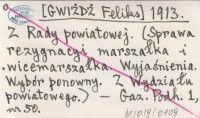 [GWIŻDŻ Feliks] 1913.
Z Rady powiatowej. (Sprawa
rezygnacyi marszałka i
wicemarszałka. Wyjaśnienia.
Wybór ponowny. Z Wydziału
powiatowego.) – Gaz. Podh. 1,
nr. 50.